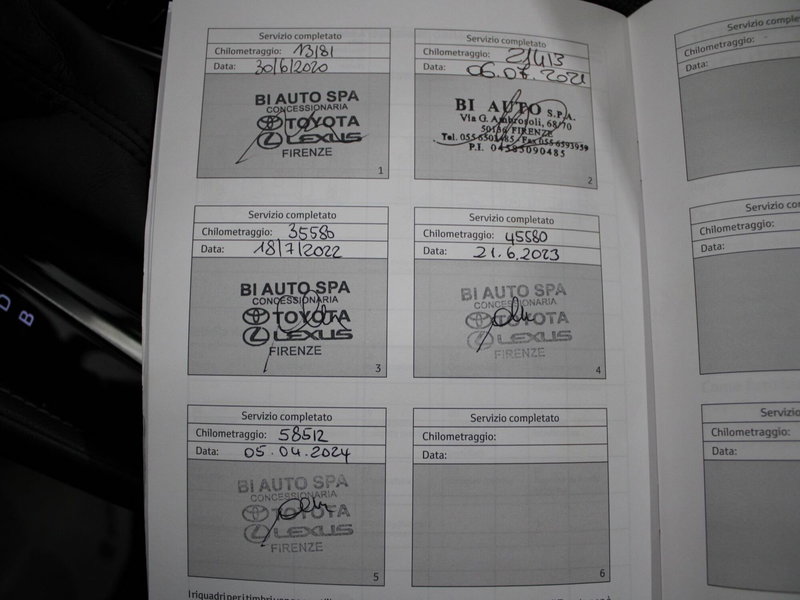 Servizio completato
Chilometraggio: 13181
Data: 30/6/2020
BI AUTO SPA
CONCESSIONARIA
TOYOTA
LEXUS
FIRENZE
1
Servizio completato
Chilometraggio: 21413
Data: 06.07.2021
BI AUTO S.P.A.
Via G. Ambrosoli, 68/70
50136 FIRENZE
Tel. 055 6503485 / Fax 055 6593939
P.I. 04585090485
2
Servizio completato
Chilometraggio: 35580
Data: 18/7/2022
BI AUTO SPA
CONCESSIONARIA
TOYOTA
LEXUS
FIRENZE
3
Servizio completato
Chilometraggio: 45580
Data: 21.6.2023
BI AUTO SPA
CONCESSIONARIA
TOYOTA
LEXUS
FIRENZE
4
Servizio completato
Chilometraggio: 58512
Data: 05.04.2024
BI AUTO SPA
CONCESSIONARIA
TOYOTA
LEXUS
FIRENZE
5
Servizio completato
Chilometraggio:
Data:
6
Servizio completat
Chilometraggio:
Data:
Servizio
Chilometraggio:
Data:
Servizio
Chilometraggio:
Data:
D
B